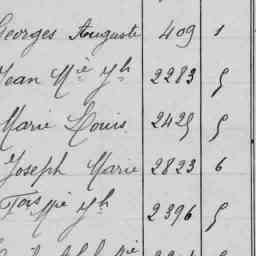 Georges Auguste 409 1
Jean Mie Jh 2283 5
Marie Louis 2425 5
Joseph Marie 2823 6
Fois Mie Jh 2396 5